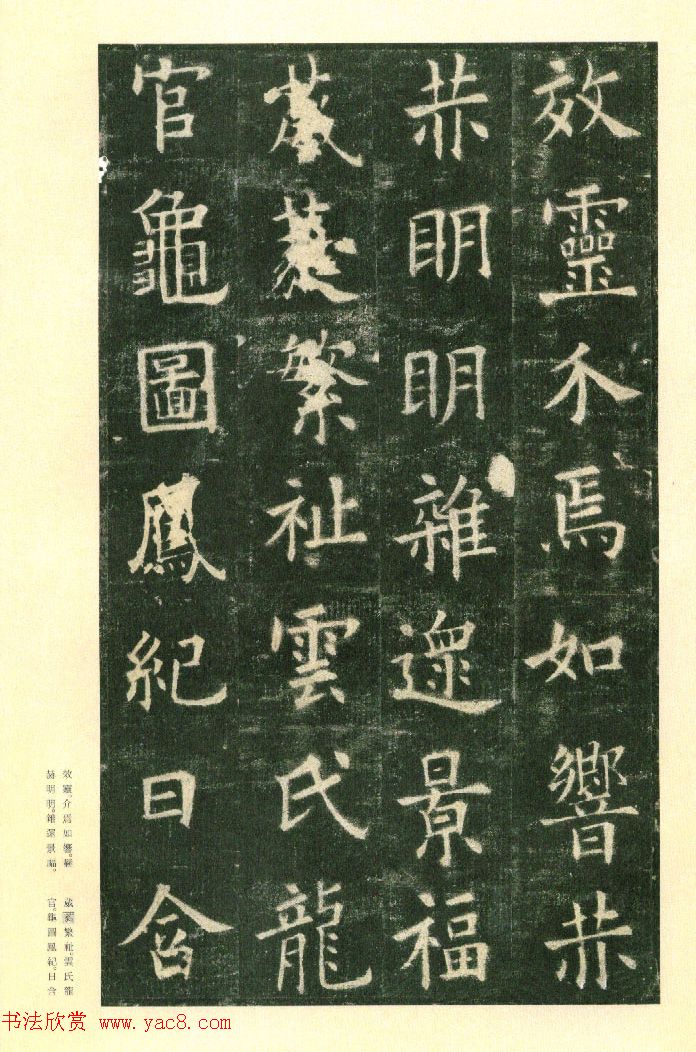 效靈介焉如響赫
赫明明雜遝景福
葳蕤繁祉雲氏龍
官龜圖鳳紀日含
效靈。介焉如響。赫
赫明明。雜遝景福。
葳蕤繁祉。雲氏龍
官。龜圖鳳紀。日含
书法欣赏 www.yac8.com